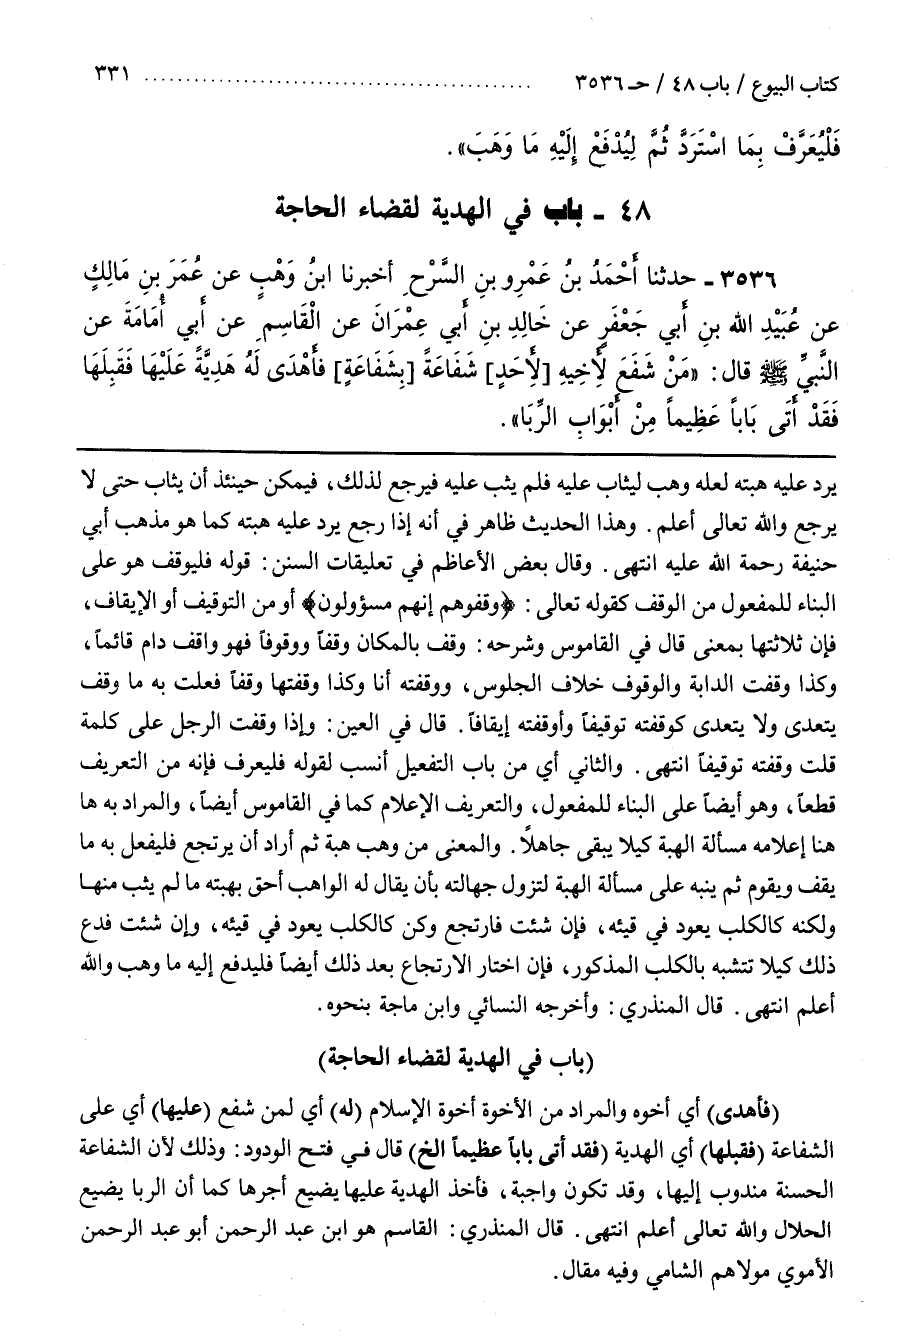 كتاب البيوع / باب ٤٨ / حـ ٣٥٣٦ ........................................ ٣٣١
فَلْيُعَرَّفْ بِمَا اسْتَرَدَّ ثُمَّ لِيُدْفَعْ إِلَيْهِ مَا وَهَبَ».
٤٨ ـ باب في الهدية لقضاء الحاجة
٣٥٣٦ ـ حدثنا أَحْمَدُ بنُ عَمْرِو بنِ السَّرْحِ أخبرنا ابنُ وَهْبٍ عن عُمَرَ بنِ مَالِكٍ
عن عُبَيْدِ الله بنِ أَبي جَعْفَرٍ عن خَالِدِ بنِ أبي عِمْرَانَ عن الْقَاسِمِ عن أَبي أُمَامَةَ عن
النَّبيِّ ﷺ قال: «مَنْ شَفَعَ لأَخِيهِ [لأَحَدٍ] شَفَاعَةً [بِشَفَاعَةٍ] فأَهْدَى لَهُ هَدِيَّةً عَلَيْهَا فَقَبِلَهَا
فَقَدْ أَتَى بَاباً عَظِيماً مِنْ أَبْوَابِ الرِّبَا».
يرد عليه هبته لعله وهب ليثاب عليه فلم يثب عليه فيرجع لذلك، فيمكن حينئذ أن يثاب حتى لا
يرجع والله تعالى أعلم. وهذا الحديث ظاهر في أنه إذا رجع يرد عليه هبته كما هو مذهب أبي
حنيفة رحمة الله عليه انتهى. وقال بعض الأعاظم في تعليقات السنن: قوله فليوقف هو على
البناء للمفعول من الوقف كقوله تعالى: ﴿وقفوهم إنهم مسؤولون﴾ أو من التوقيف أو الإيقاف،
فإن ثلاثتها بمعنى قال في القاموس وشرحه: وقف بالمكان وقفاً ووقوفاً فهو واقف دام قائماً،
وكذا وقفت الدابة والوقوف خلاف الجلوس، ووقفته أنا وكذا وقفتها وقفاً فعلت به ما وقف
يتعدى ولا يتعدى كوقفته توقيفاً وأوقفته إيقافاً. قال في العين: وإذا وقفت الرجل على كلمة
قلت وقفته توقيفاً انتهى. والثاني أي من باب التفعيل أنسب لقوله فليعرف فإنه من التعريف
قطعاً، وهو أيضاً على البناء للمفعول، والتعريف الإعلام كما في القاموس أيضاً، والمراد به ها
هنا إعلامه مسألة الهبة كيلا يبقى جاهلاً. والمعنى من وهب هبة ثم أراد أن يرتجع فليفعل به ما
يقف ويقوم ثم ينبه على مسألة الهبة لتزول جهالته بأن يقال له الواهب أحق بهبته ما لم يثب منها
ولكنه كالكلب يعود في قيئه، فإن شئت فارتجع وكن كالكلب يعود في قيئه، وإن شئت فدع
ذلك كيلا تتشبه بالكلب المذكور، فإن اختار الارتجاع بعد ذلك أيضاً فليدفع إليه ما وهب والله
أعلم انتهى. قال المنذري: وأخرجه النسائي وابن ماجة بنحوه.
(باب في الهدية لقضاء الحاجة)
(فأهدى) أي أخوه والمراد من الأخوة أخوة الإسلام (له) أي لمن شفع (عليها) أي على
الشفاعة (فقبلها) أي الهدية (فقد أتى باباً عظيماً الخ) قال في فتح الودود: وذلك لأن الشفاعة
الحسنة مندوب إليها، وقد تكون واجبة، فأخذ الهدية عليها يضيع أجرها كما أن الربا يضيع
الحلال والله تعالى أعلم انتهى. قال المنذري: القاسم هو ابن عبد الرحمن أبو عبد الرحمن
الأموي مولاهم الشامي وفيه مقال.